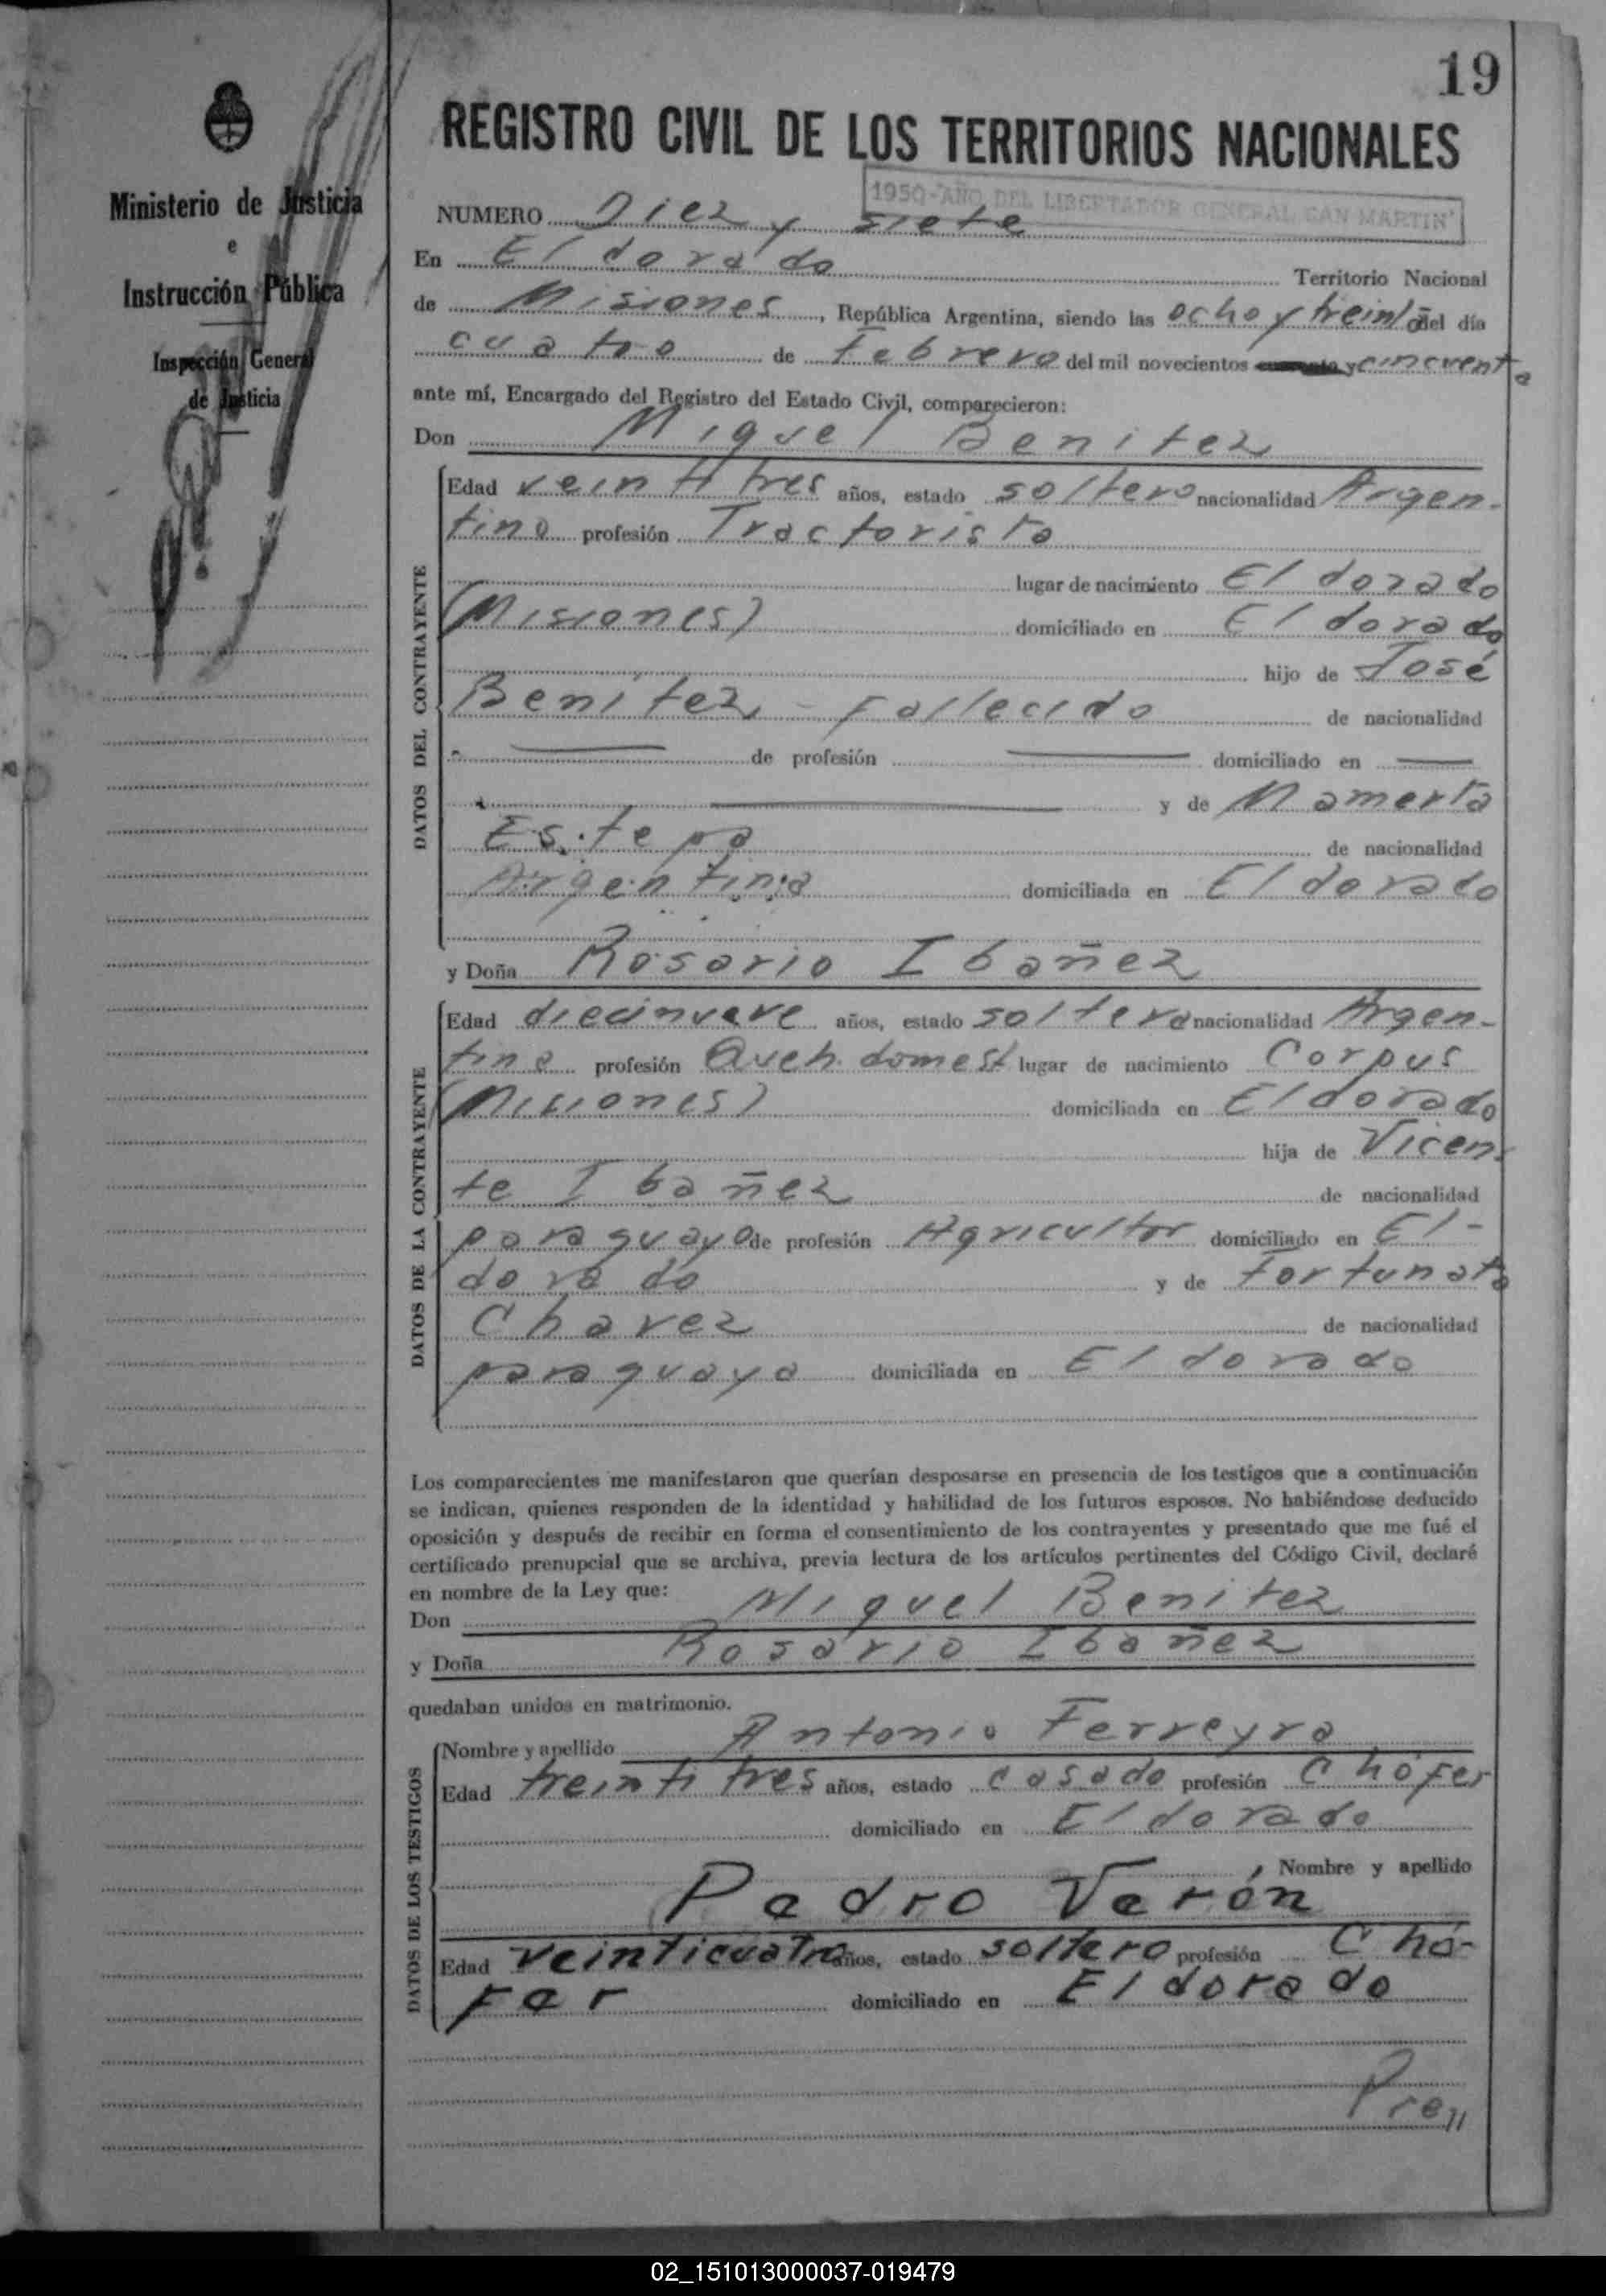 19
REGISTRO CIVIL DE LOS TERRITORIOS NACIONALES
Ministerio de Justicia
e
Instrucción Pública
Inspección General
de Justicia
1950-AÑO DEL LIBERTADOR GENERAL SAN MARTIN
NUMERO Diez y siete
En Eldorado Territorio Nacional
de Misiones, República Argentina, siendo las ocho y treinta del día
cuatro de Febrero del mil novecientos y cincuenta
ante mí, Encargado del Registro del Estado Civil, comparecieron:
Don Miguel Benitez
DATOS DEL CONTRAYENTE
Edad veintitres años, estado soltero nacionalidad Argen-
tino profesión Tractorista
lugar de nacimiento Eldorado
(Misiones) domiciliado en Eldorado
hijo de José
Benitez - Fallecido de nacionalidad
de profesión domiciliado en
y de Mamerta
Estepa de nacionalidad
Argentina domiciliada en Eldorado
y Doña Rosario Ibañez
DATOS DE LA CONTRAYENTE
Edad diecinueve años, estado soltera nacionalidad Argen-
tina profesión Queh. domest lugar de nacimiento Corpus
(Misiones) domiciliada en Eldorado
hija de Vicen-
te Ibañez de nacionalidad
paraguayo de profesión Agricultor domiciliado en El-
dorado y de Fortunata
Chavez de nacionalidad
paraguaya domiciliada en Eldorado
Los comparecientes me manifestaron que querían desposarse en presencia de los testigos que a continuación
se indican, quienes responden de la identidad y habilidad de los futuros esposos. No habiéndose deducido
oposición y después de recibir en forma el consentimiento de los contrayentes y presentado que me fué el
certificado prenupcial que se archiva, previa lectura de los artículos pertinentes del Código Civil, declaré
en nombre de la Ley que:
Don Miguel Benitez
y Doña Rosario Ibañez
quedaban unidos en matrimonio.
DATOS DE LOS TESTIGOS
Nombre y apellido Antonio Ferreyra
Edad treintitres años, estado casado profesión Chófer
domiciliado en Eldorado
, Nombre y apellido
Pedro Verón
Edad veinticuatro años, estado soltero profesión Chó-
fer domiciliado en Eldorado
02_151013000037-019479